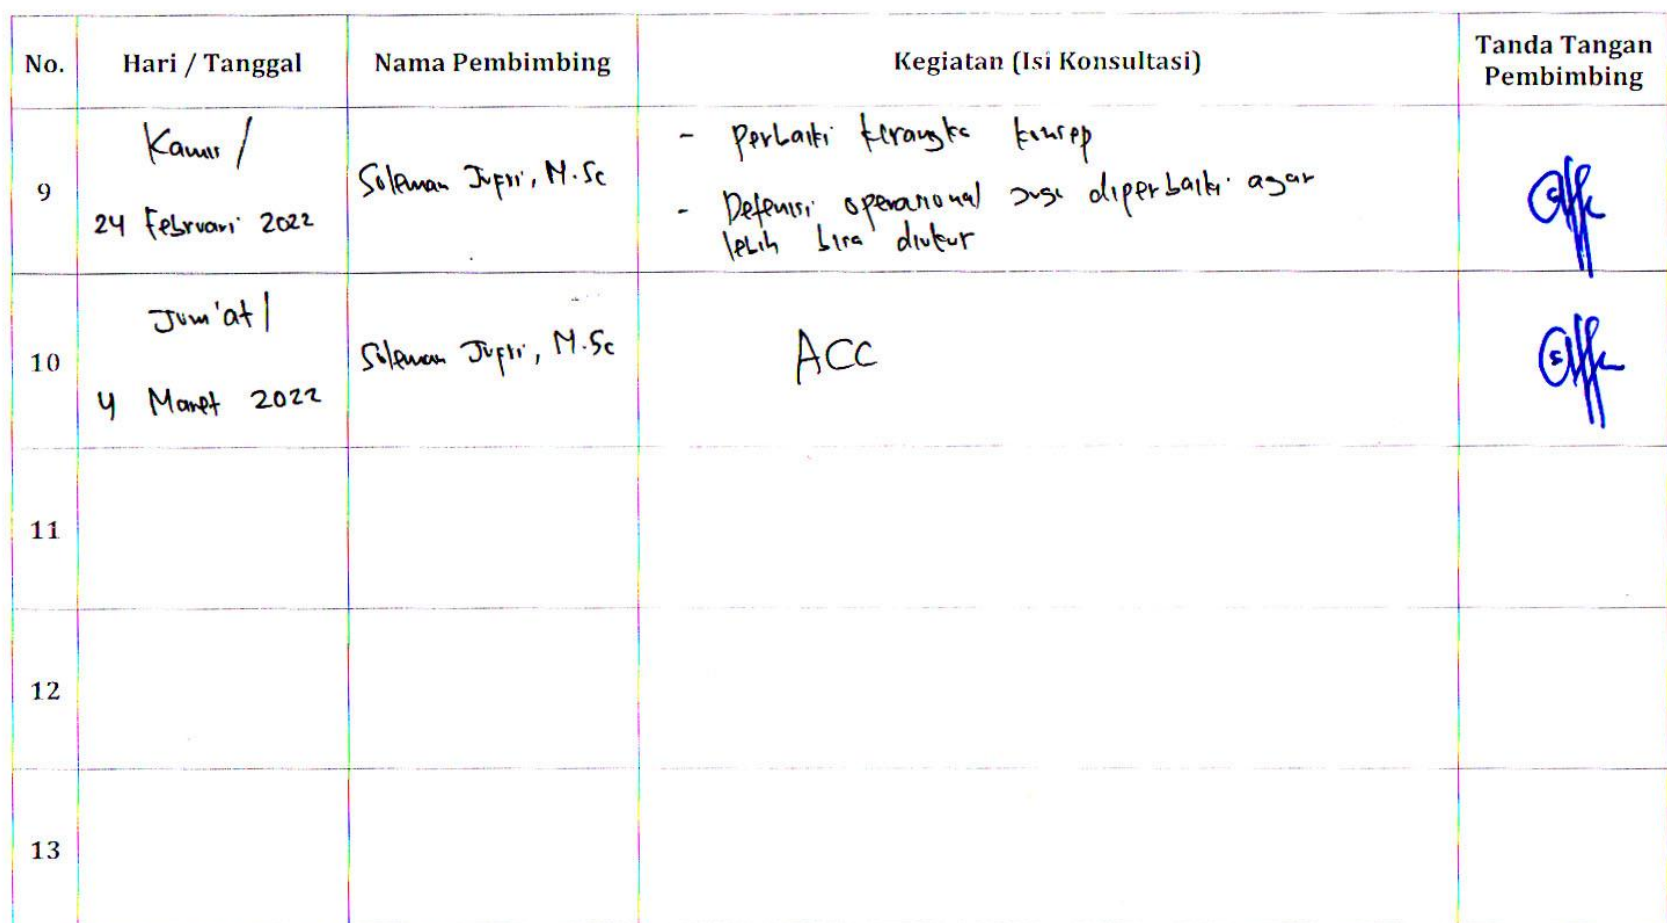 No. Hari / Tanggal Nama Pembimbing Kegiatan (Isi Konsultasi) Tanda Tangan
Pembimbing
9
Kamis /
24 Februari 2022
Soleman Jufri, M.Sc
- Perbaiki kerangka konsep
- Defenisi operasional juga diperbaiki agar
lebih bisa diukur
10
Jum'at /
4 Maret 2022
Soleman Jufri, M.Sc
ACC
11
12
13